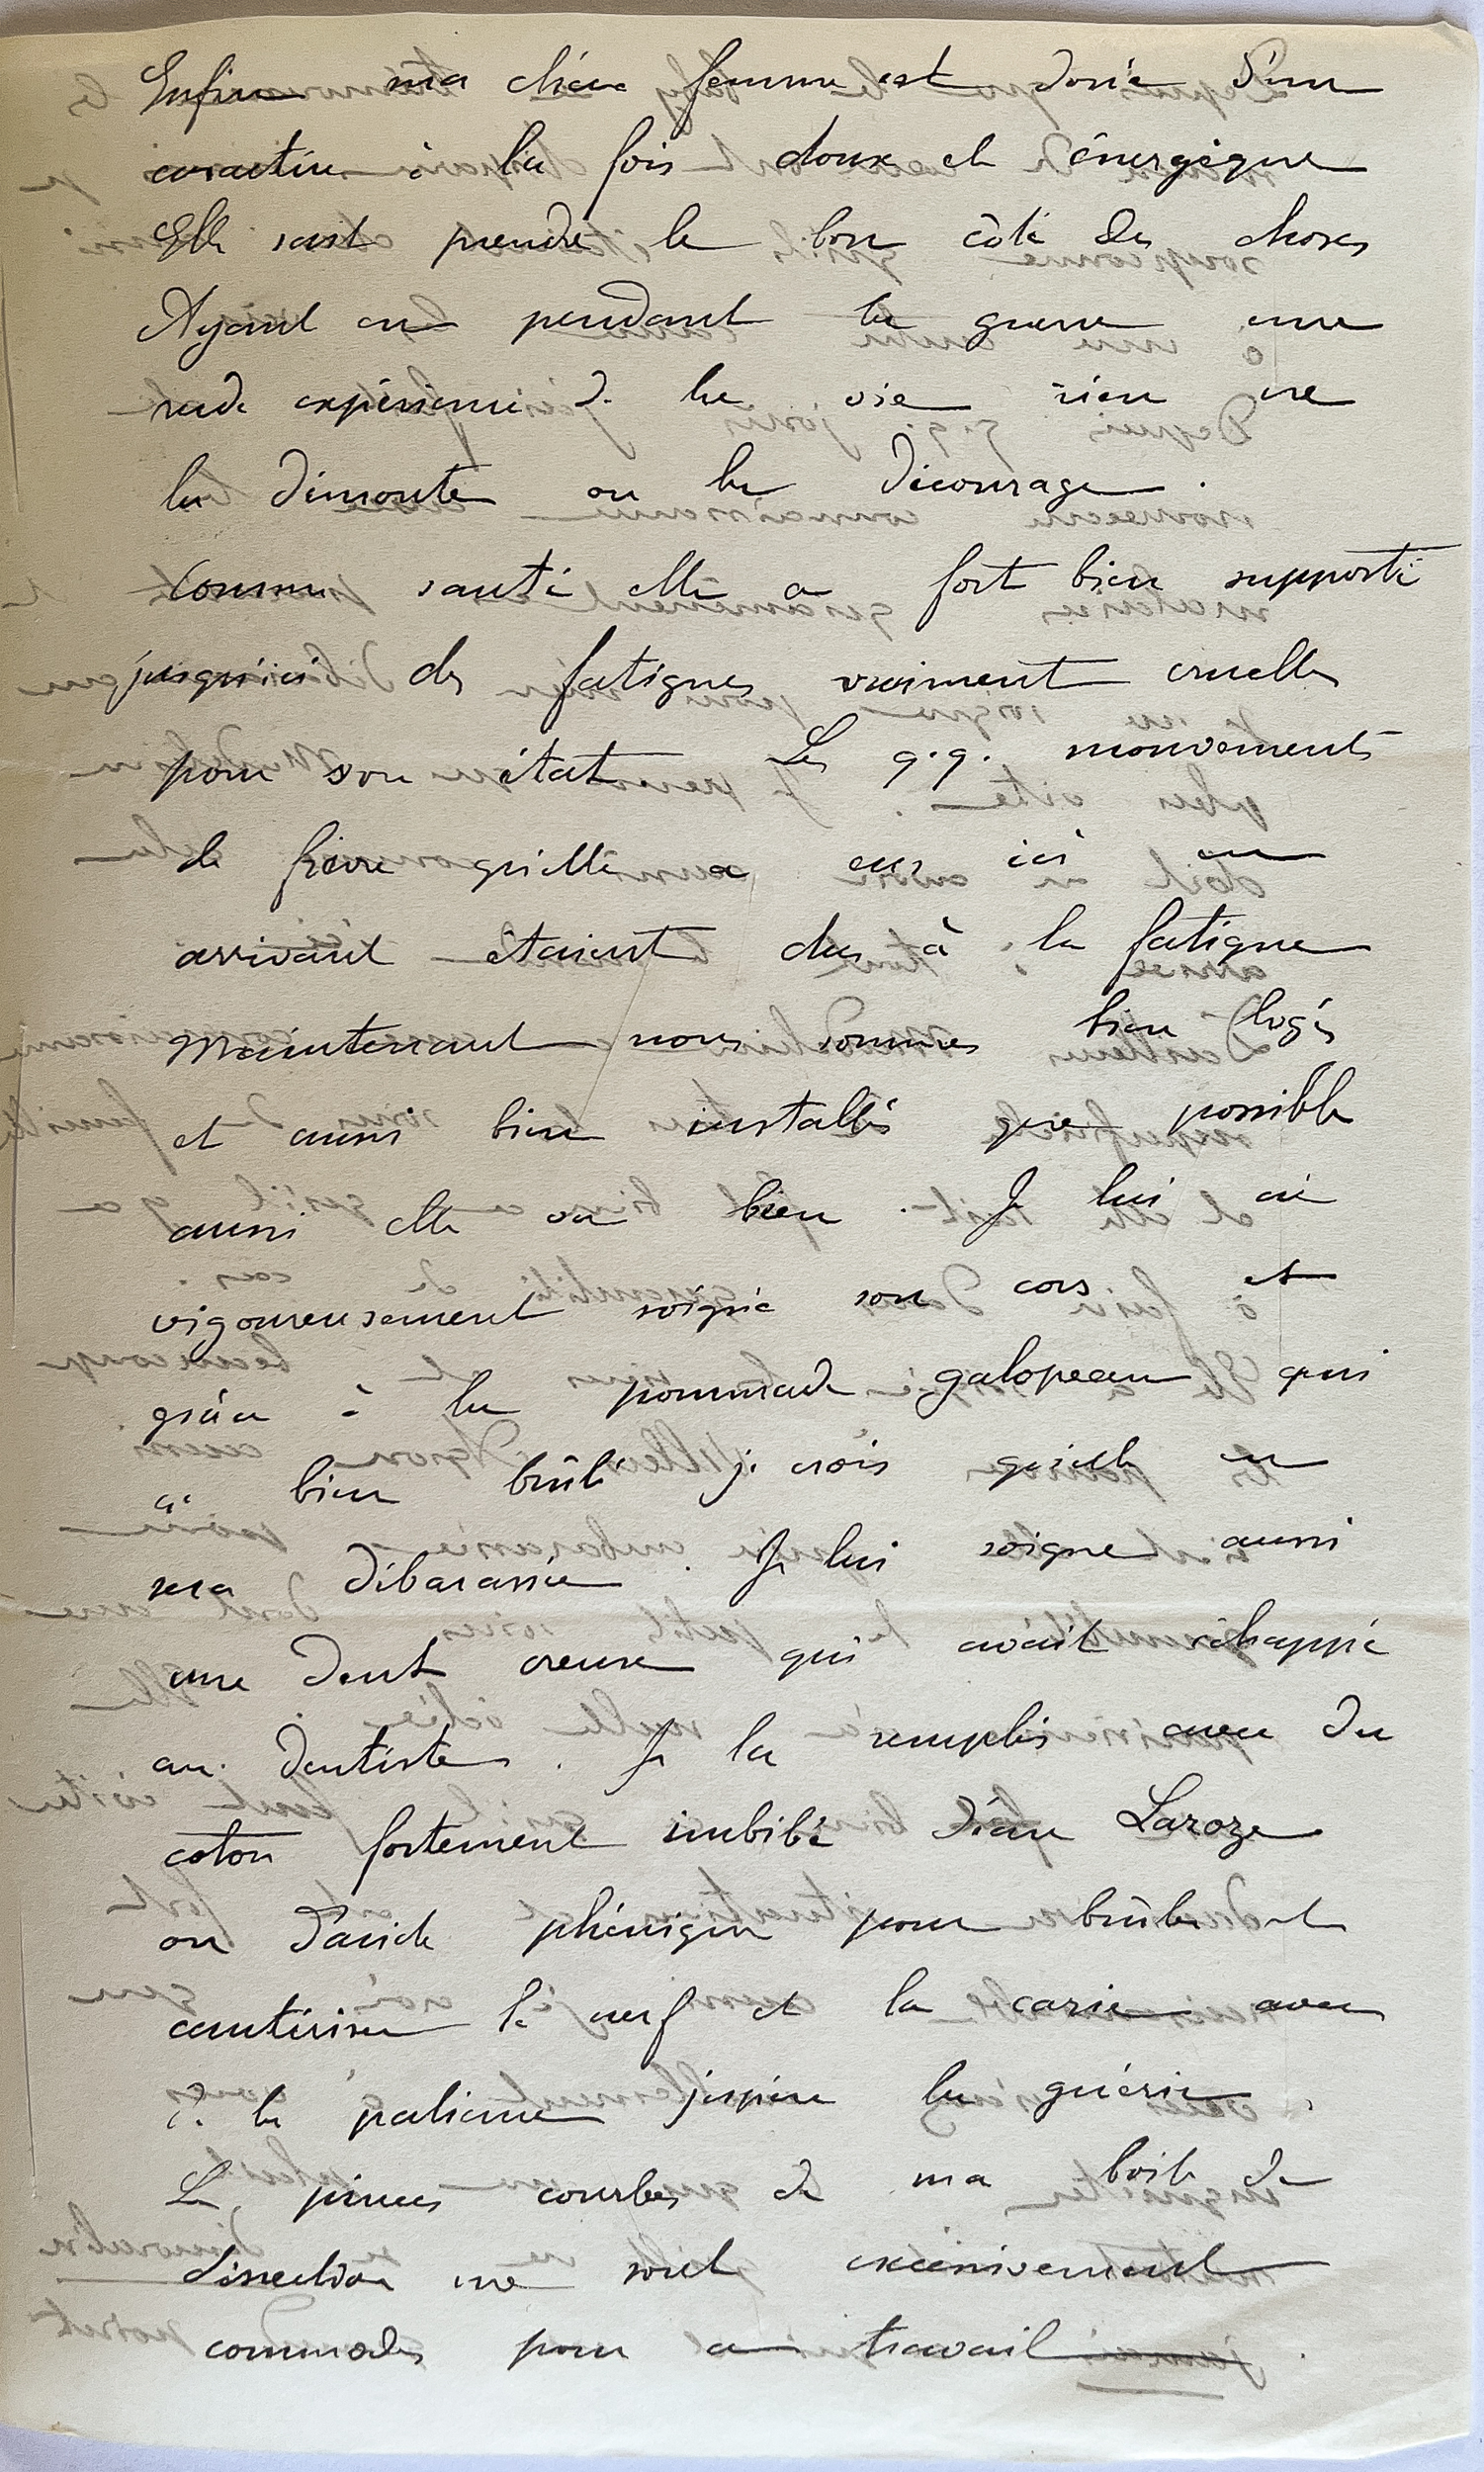 Enfin ma chère femme est douée d'un
caractère à la fois doux et énergique
Elle sait prendre le bon côté des choses
Ayant eu pendant la guerre une
rude expérience de la vie rien ne
la démonte ou la décourage.
Comme santé elle a fort bien supporté
jusqu'ici des fatigues vraiment cruelles
pour son état Les q.q. mouvements
de fièvre qu'elle a eus ici en
arrivant étaient dus à la fatigue
Maintenant nous sommes bien logés
et aussi bien installés que possible
aussi elle va bien. Je lui ai
vigoureusement soigné son cors et
grâce à la pommade galopeau qui
a bien brûlé je crois qu'elle en
sera débarassée. Je lui soigne aussi
une dent creuse qui avait échappé
au dentiste. Je la remplis avec du
coton fortement imbibé d'eau Laroze
ou d'acide phénique pour brûler et
cautériser le nerf et la carie avec
de la patience j'espère la guérir.
Les pinces courbes de ma boite de
dissection me sont excessivement
commodes pour ce travail.